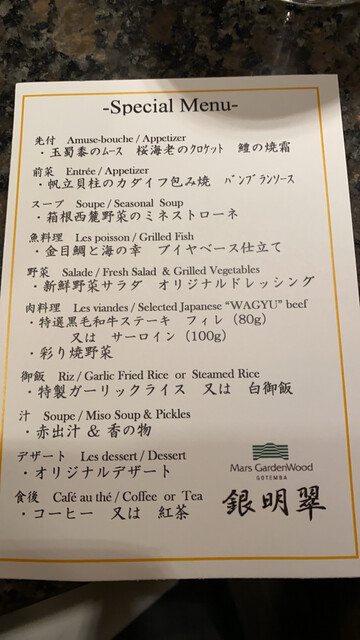 -Special Menu-
先付 Amuse-bouche / Appetizer
・玉蜀黍のﾑｰｽ 桜海老のｸﾛｹｯﾄ 鱧の焼霜
前菜 Entrée / Appetizer
・帆立貝柱のカダイフ包み焼 ﾊﾞﾝﾌﾞﾗﾝソース
スープ Soupe / Seasonal Soup
・箱根西麓野菜のミネストローネ
魚料理 Les poisson / Grilled Fish
・金目鯛と海の幸 ブイヤベース仕立て
野菜 Salade / Fresh Salad & Grilled Vegetables
・新鮮野菜サラダ オリジナルドレッシング
肉料理 Les viandes / Selected Japanese "WAGYU" beef
・特選黒毛和牛ステーキ フィレ（80g）
又は サーロイン（100g）
・彩り焼野菜
御飯 Riz / Garlic Fried Rice or Steamed Rice
・特製ガーリックライス 又は 白御飯
汁 Soupe / Miso Soup & Pickles
・赤出汁 & 香の物
デザート Les dessert / Dessert
・オリジナルデザート
食後 Café au thé / Coffee or Tea
・コーヒー 又は 紅茶
Mars GardenWood
GOTEMBA
銀明翠